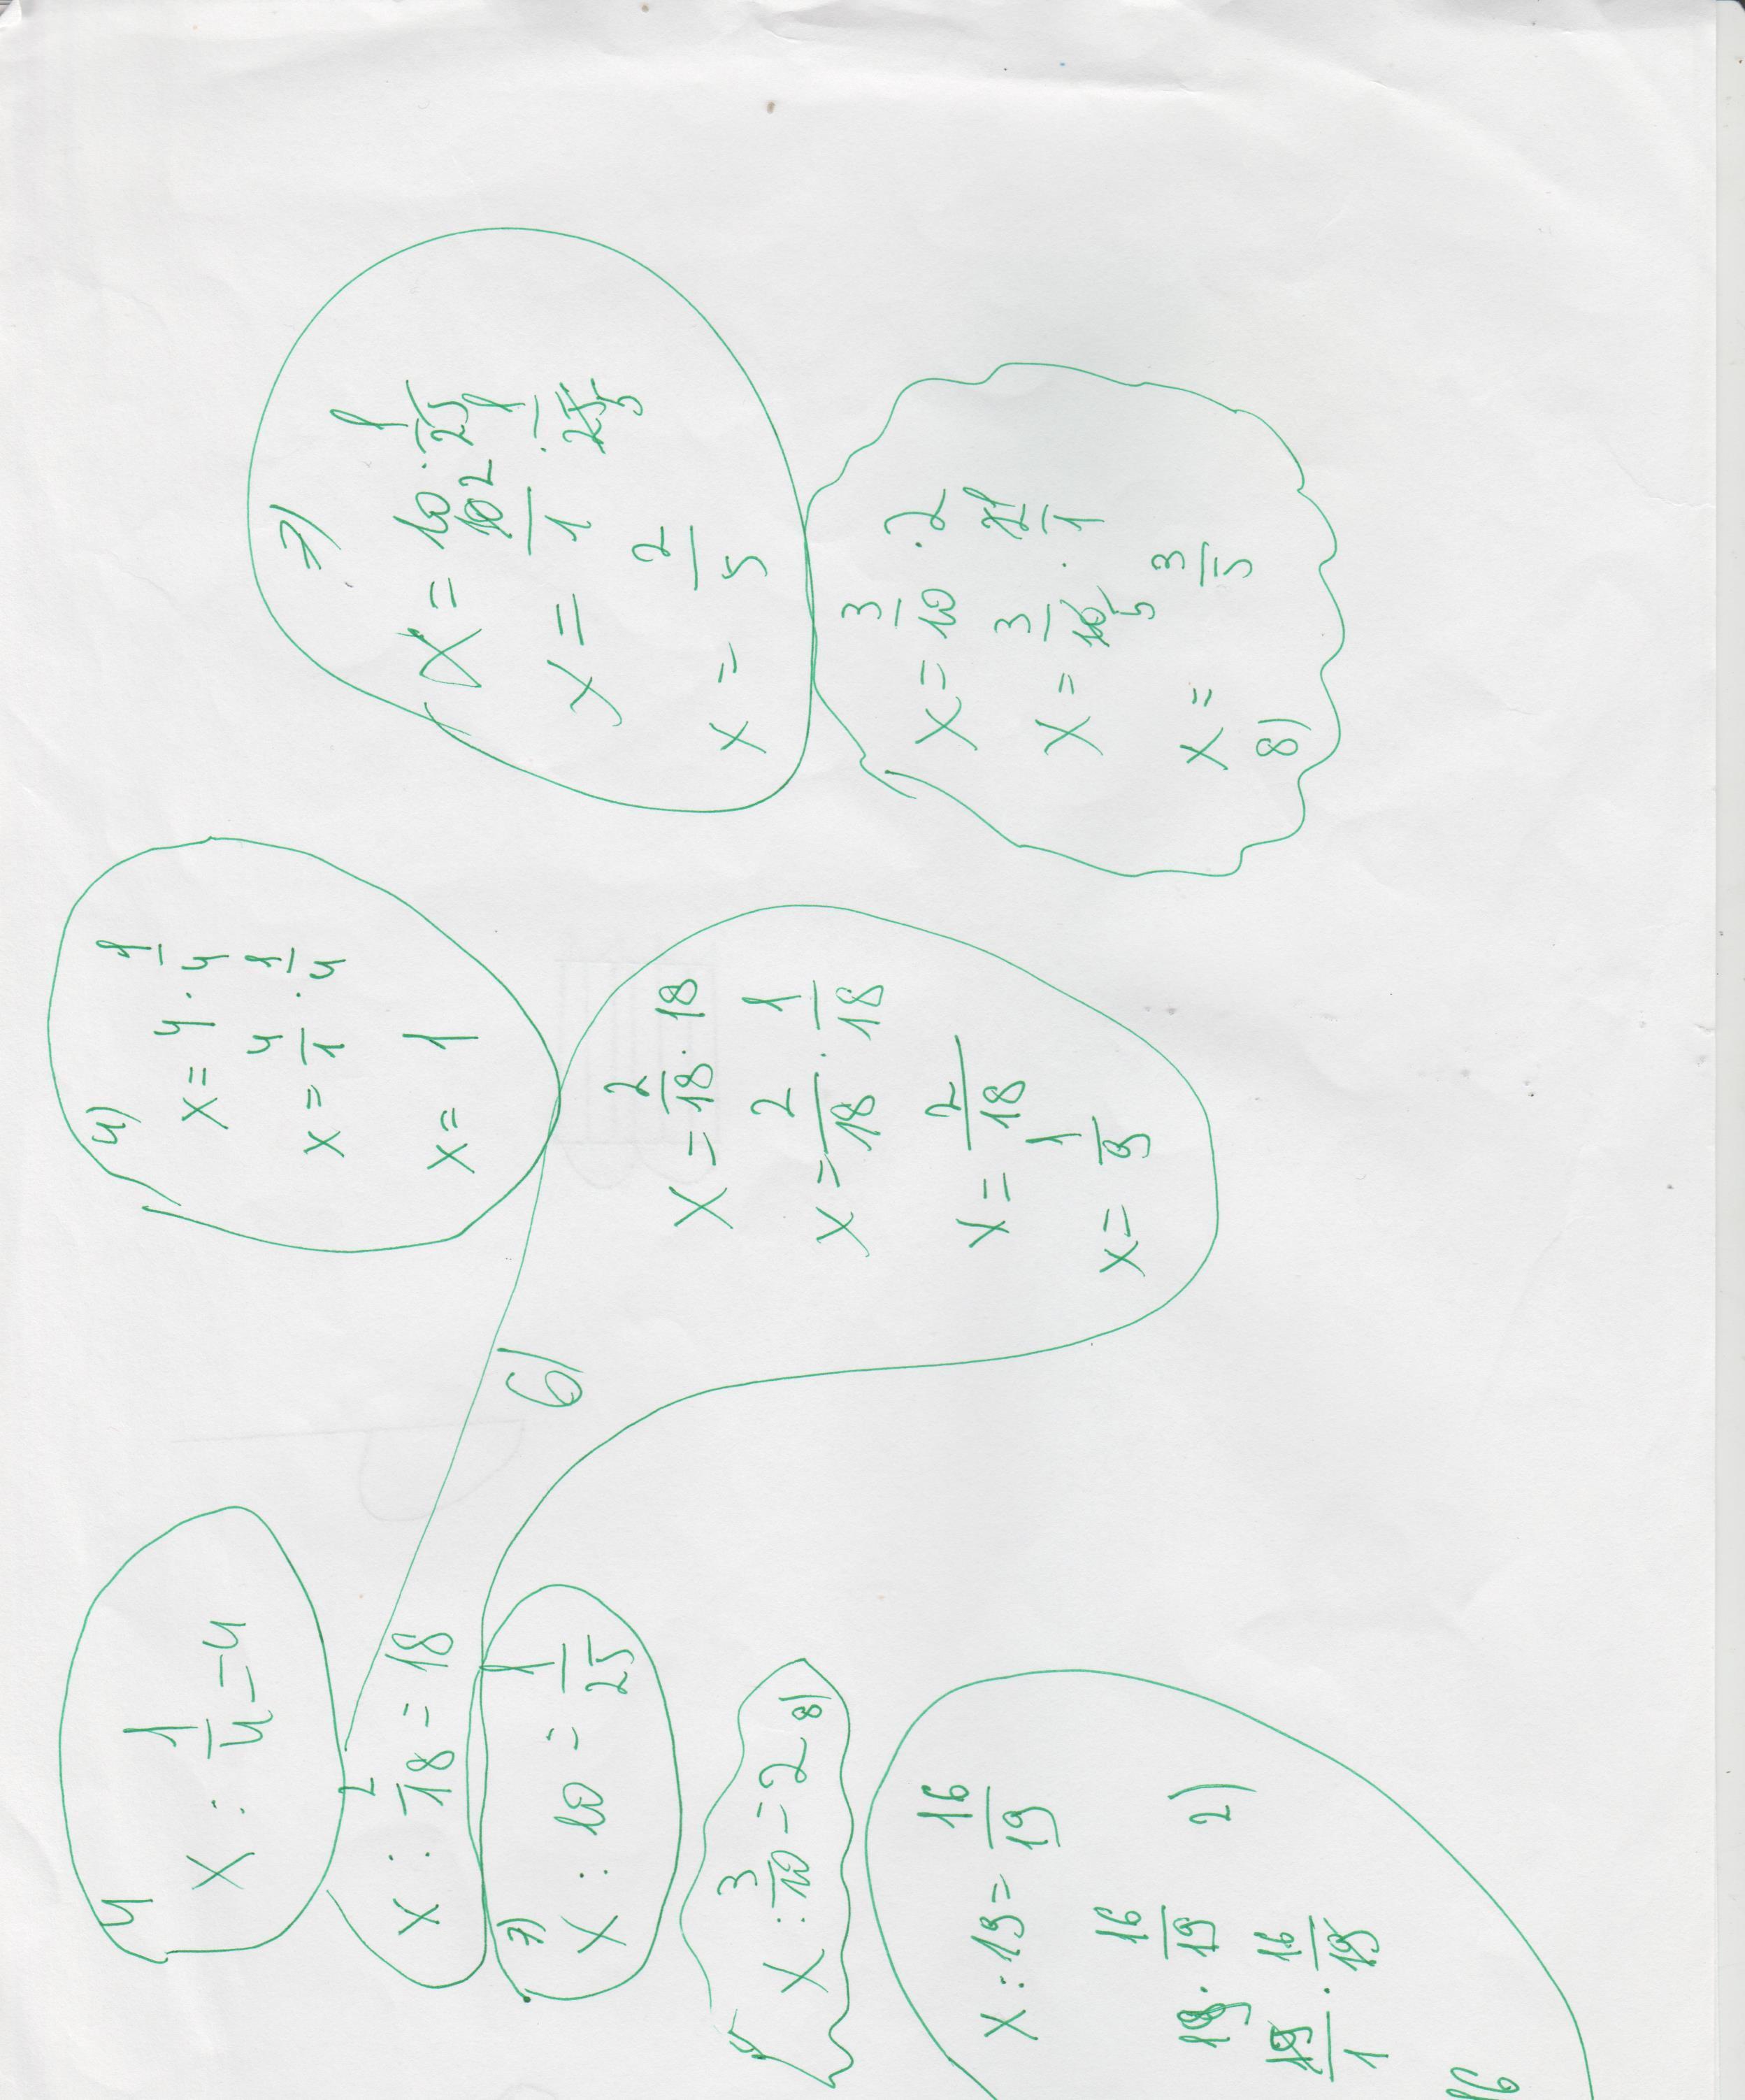 4
x : 1/4 = 4
x : 2/18 = 18
6)
7)
x : 10 = 1/25
x : 3/10 = 2 8)
x : 19 = 16/19
2)
19 · 16/19
19/1 · 16/19
16
4)
x = 4 · 1/4
x = 4/1 · 1/4
x = 1
x = 2/18 · 18
x = 2/18 · 1/18
x = 2/18
x = 1/9
7)
x = 10 · 1/25
x = 10 2/1 · 1/25 5
x = 2/5
x = 3/10 · 2
x = 3/10 5 · 2 1/1
x = 3/5
8)